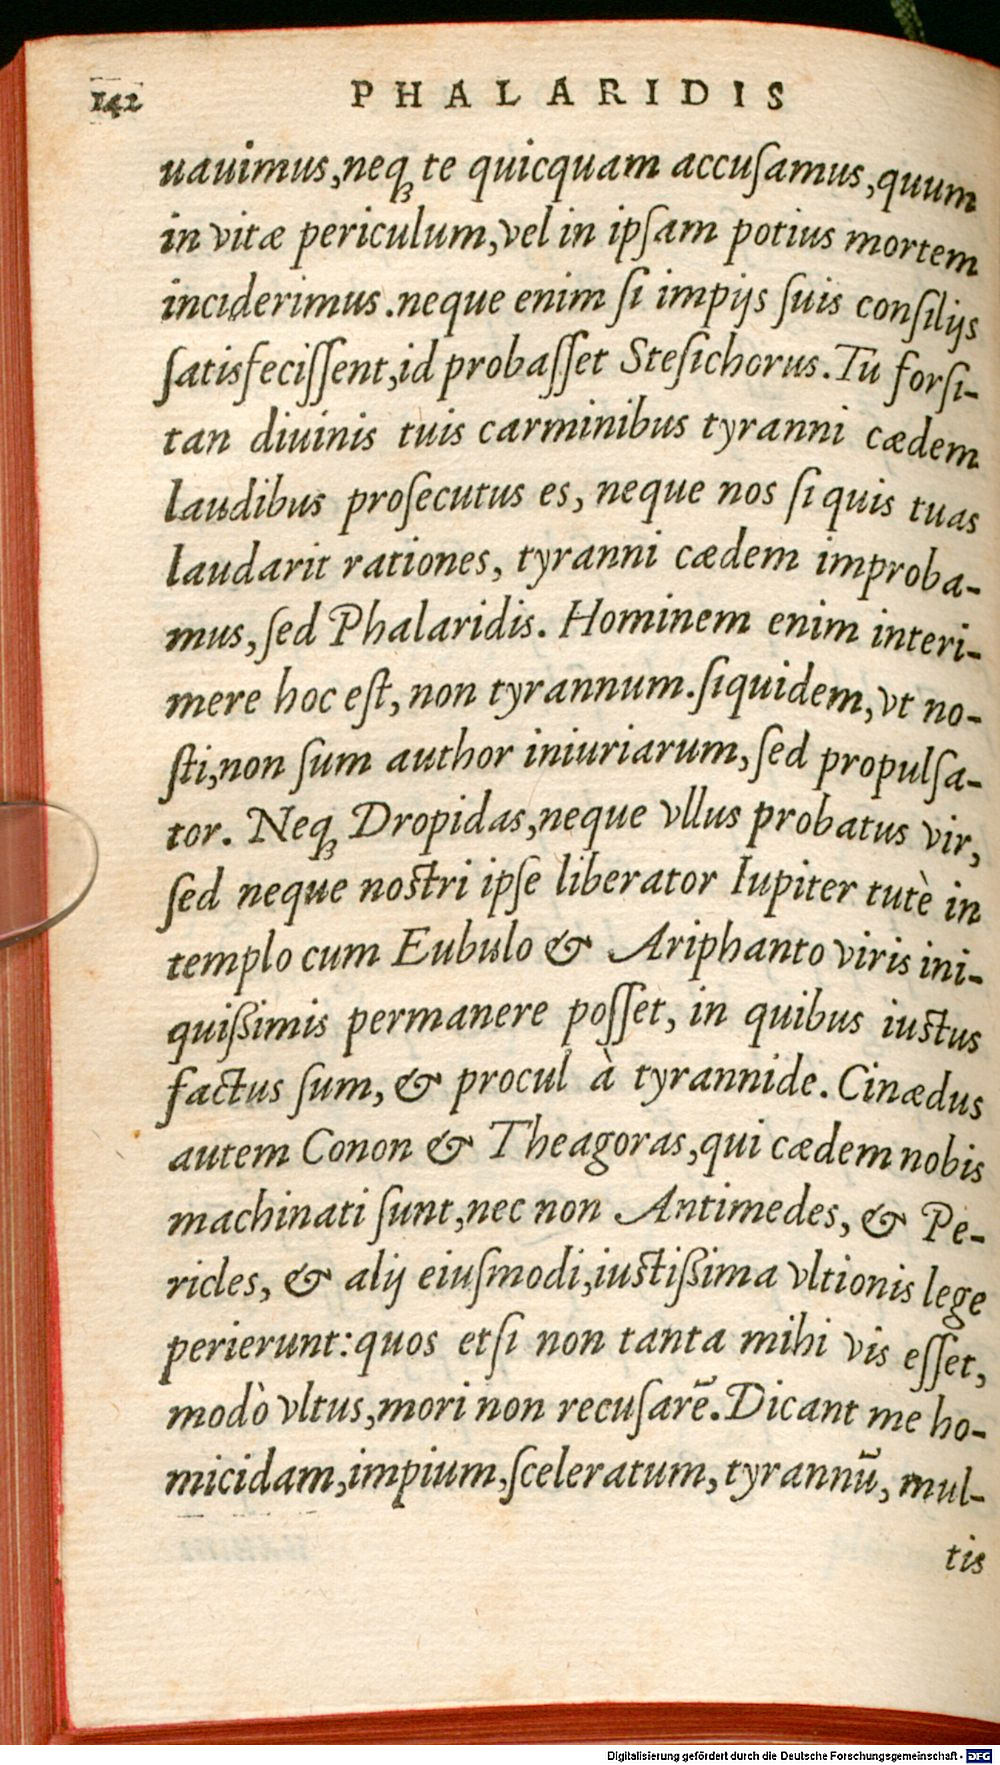 142 PHALARIDIS
uauimus, neqꝫ te quicquam accuſamus, quum
in vitæ periculum, vel in ipſam potius mortem
inciderimus. neque enim ſi impijs ſuis conſilijs
ſatisfeciſſent, id probaſſet Steſichorus. Tu forſi-
tan diuinis tuis carminibus tyranni cædem
laudibus proſecutus es, neque nos ſi quis tuas
laudarit rationes, tyranni cædem improba-
mus, ſed Phalaridis. Hominem enim interi-
mere hoc eſt, non tyrannum. ſiquidem, vt no-
ſti, non ſum author iniuriarum, ſed propulſa-
tor. Neqꝫ Dropidas, neque vllus probatus vir,
ſed neque noſtri ipſe liberator Iupiter tutè in
templo cum Eubulo & Ariphanto viris ini-
quißimis permanere poſſet, in quibus iuſtus
factus ſum, & procul à tyrannide. Cinædus
autem Conon & Theagoras, qui cædem nobis
machinati ſunt, nec non Antimedes, & Pe-
ricles, & alij eiuſmodi, iuſtißima vltionis lege
perierunt: quos etſi non tanta mihi vis eſſet,
modò vltus, mori non recuſarē. Dicant me ho-
micidam, impium, ſceleratum, tyrannū, mul-
tis
Digitalisierung gefördert durch die Deutsche Forschungsgemeinschaft - DFG